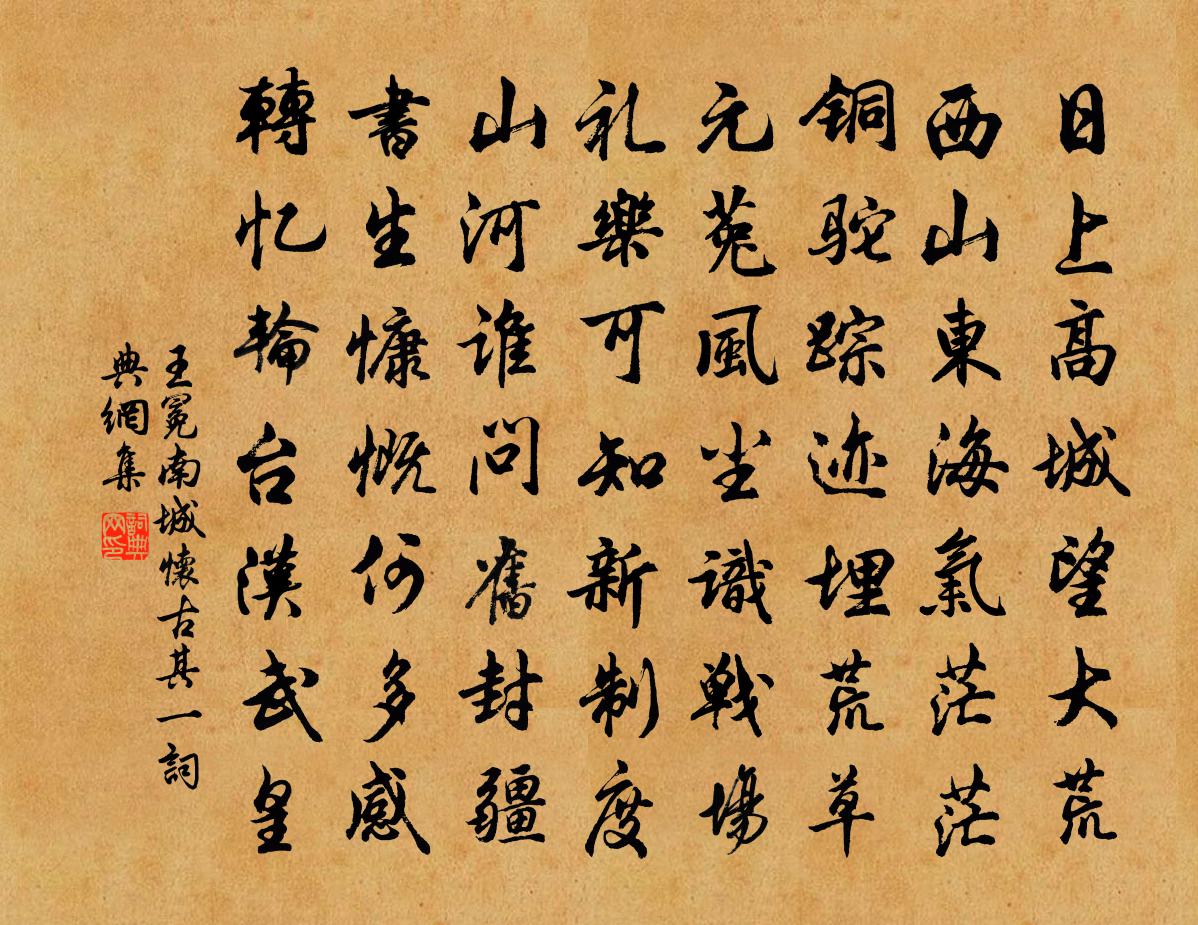 日上高城望大荒
西山東海氣茫茫
铜驼踪迹埋荒草
元菟風尘識戦場
礼樂可知新制度
山河誰问舊封疆
書生慷慨何多感
轉忆輪台漢武皇
王冕南城懷古其一詞
典網集
詞典网印